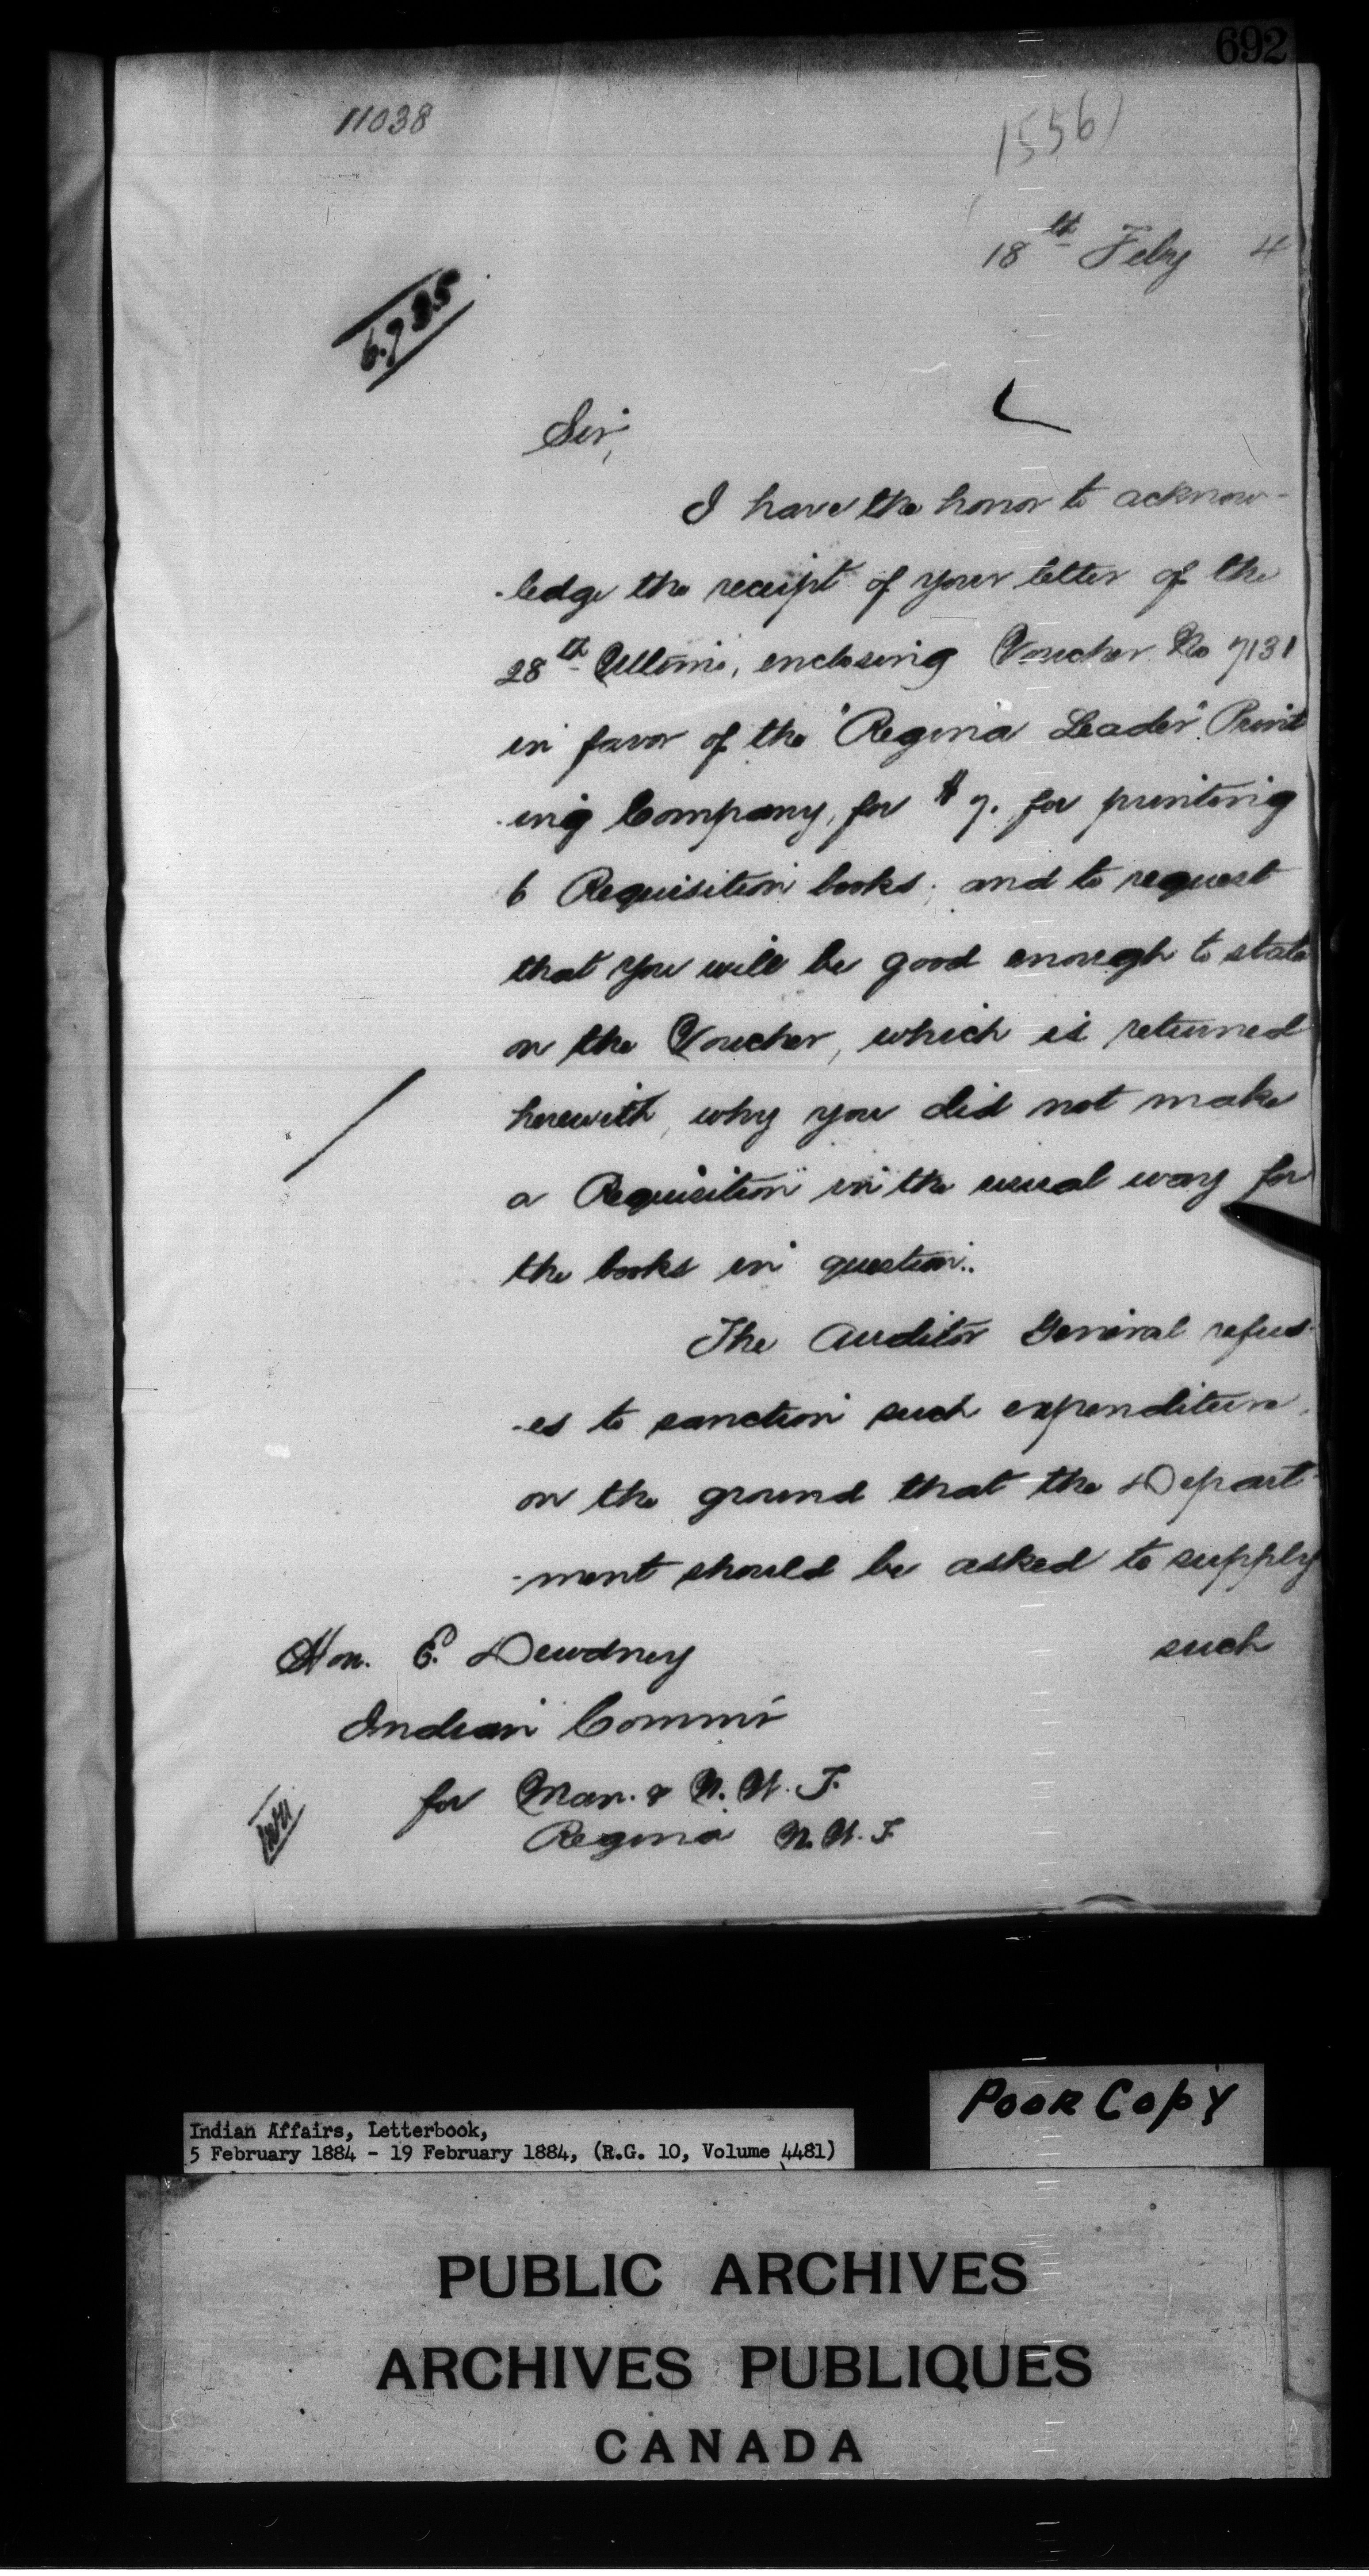 692
11038
1556)
18th Feby 4
6.935
Sir,
I have the honor to acknow-
-ledge the receipt of your letter of the
28th Ultimo, enclosing Voucher No 7131
in favor of the "Regina Leader" Print
-ing Company, for $7. for printing
6 Requisition books; and to request
that you will be good enough to state
on the Voucher, which is returned
herewith, why you did not make
a Requisition in the usual way for
the books in question.
The Auditor General refus-
-es to sanction such expenditure,
on the ground that the Depart-
-ment should be asked to supply
such
Hon. E. Dewdney
Indian Commr
for Man. & N. W. T.
Regina N. W. T.
Poor Copy
Indian Affairs, Letterbook,
5 February 1884 - 19 February 1884, (R.G. 10, Volume 4481)
PUBLIC ARCHIVES
ARCHIVES PUBLIQUES
CANADA